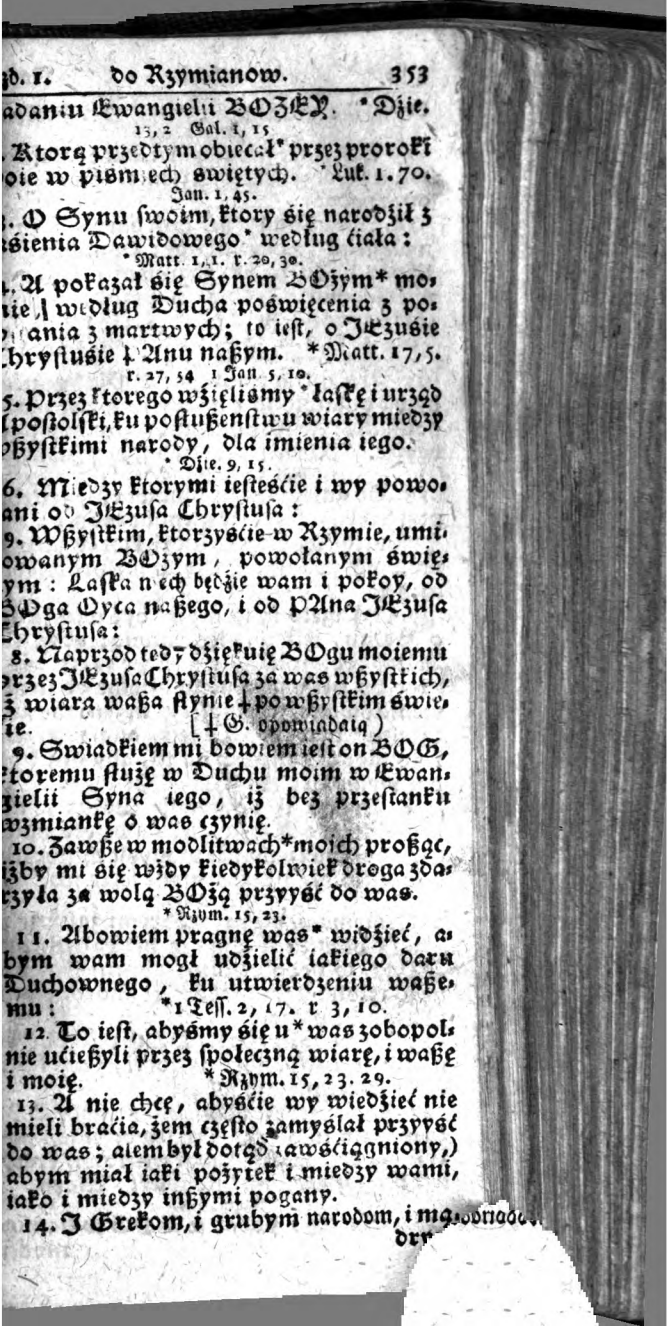 zd. 1. do Rzymianow. 353
adaniu Ewangelii BOZEY. *Dźie.
13, 2 Gal. 1, 15
Ktorą przedtym obiecał* przez proroki
oie w pismiech swiętych. *Luk. 1. 70.
Jan. 1, 45.
3. O Synu swoim, ktory śię narodźił z
aśienia Dawidowego* według ćiała:
*Matt. 1, 1. r. 20, 30.
A pokazał śię Synem BOżym* mo-
nie, według Ducha poświęcenia z po-
ania z martwych; to iest, o JEzuśie
hrystuśie PAnu naszym. *Matt. 17, 5.
r. 27, 54 1 Jan 5, 10.
5. Przez ktorego wźięliśmy *łaskę i urząd
postolski, ku posłuszenstwu wiary miedzy
wszystkimi narody, dla imienia iego.
* Dźie. 9, 15.
6. Miedzy ktorymi iesteśćie i wy powo-
ani od JEzusa Chrystusa:
9. Wszystkim, ktorzyśćie w Rzymie, umi-
owanym BOżym, powołanym świę-
ym: Łaska niech będźie wam i pokoy, od
BOga Oyca naszego, i od PAna JEzusa
Chrystusa:
8. Naprzod tedy dźiękuię BOgu moiemu
przez JEzusa Chrystusa za was wszystkich,
ż wiara wasza słynie ‡ po wszystkim świe-
ie. [‡ G. opowiadaią)
9. Swiadkiem mi bowiem iest on BOG,
ktoremu służę w Duchu moim w Ewan-
gielii Syna iego, iż bez przestanku
wzmiankę o was czynię.
10. Zawsze w modlitwach* moich prosząc,
iżby mi śię wżdy kiedykolwiek droga zda-
rzyła za wolą BOżą przyyść do was.
* Rzym. 15, 23.
11. Abowiem pragnę was* widźieć, a-
bym wam mogł udźielić iakiego daru
Duchownego, ku utwierdzeniu wasze-
mu: *1 Tess. 2, 17. r 3, 10.
12. To iest, abyśmy śię u* was zobopol-
nie ućieszyli przez społeczną wiarę, i waszę
i moię. * Rzym. 15, 23. 29.
13. A nie chcę, abyśćie wy wiedźieć nie
mieli braćia, żem często zamyślał przyyść
do was; alem był dotąd zawśćiągniony,)
abym miał iaki pożytek i miedzy wami,
iako i miedzy inszymi pogany.
14. J Grekom, i grubym narodom, i mą-